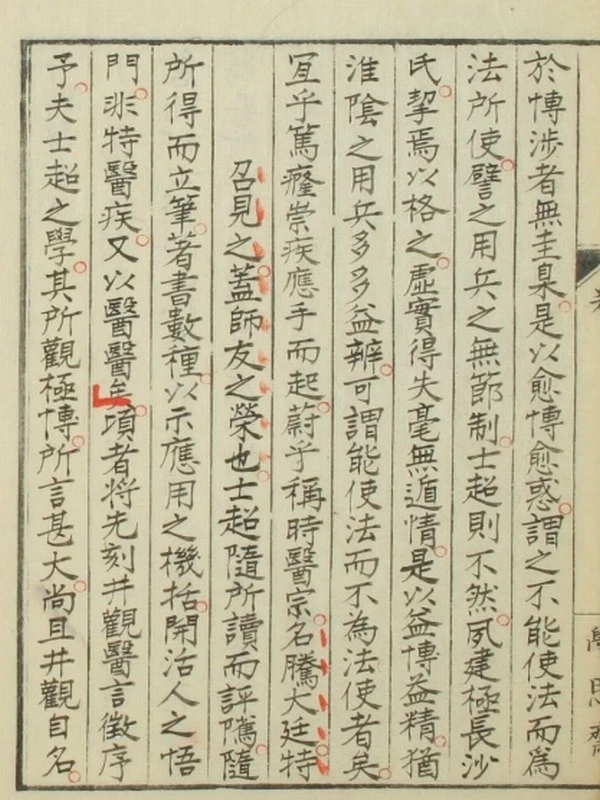 於博涉者無圭臬是以愈博愈惑謂之不能使法而爲
法所使譬之用兵之無節制士超則不然夙建極長沙
氏挈焉以格之虛實得失毫無遁情是以益博益精猶
淮陰之用兵多多益辨可謂能使法而不為法使者矣
宜乎篤癃祟疾應手而起蔚乎稱時醫宗名騰大廷特
召見之蓋師友之榮也士超隨所讀而評隲隨
所得而立筆著書數種以示應用之機括開活人之悟
門非特醫疾又以醫醫矣頃者將先刻井觀醫言徵序
予夫士超之學其所觀極博所言甚大尚且井觀自名